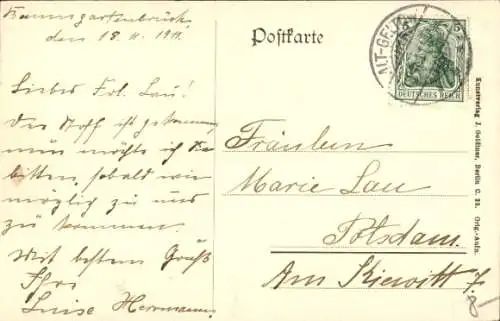 Baumgartenbrück,
den 18.11.1911.
Liebes Frl. Lau!
Der Stoff ist gekommen
nun möchte ich Sie
bitten, sobald wie
möglig zu uns
zu kommen.
Mit bestem Gruß
Ihre
Luise Herrmann
Postkarte
ALT-GELTOW
5
DEUTSCHES REICH
Fräulein
Marie Lau
Potsdam.
Am Kiewitt 7.
Kunstverlag J. Goldiner, Berlin C. 25. Orig.-Aufn.